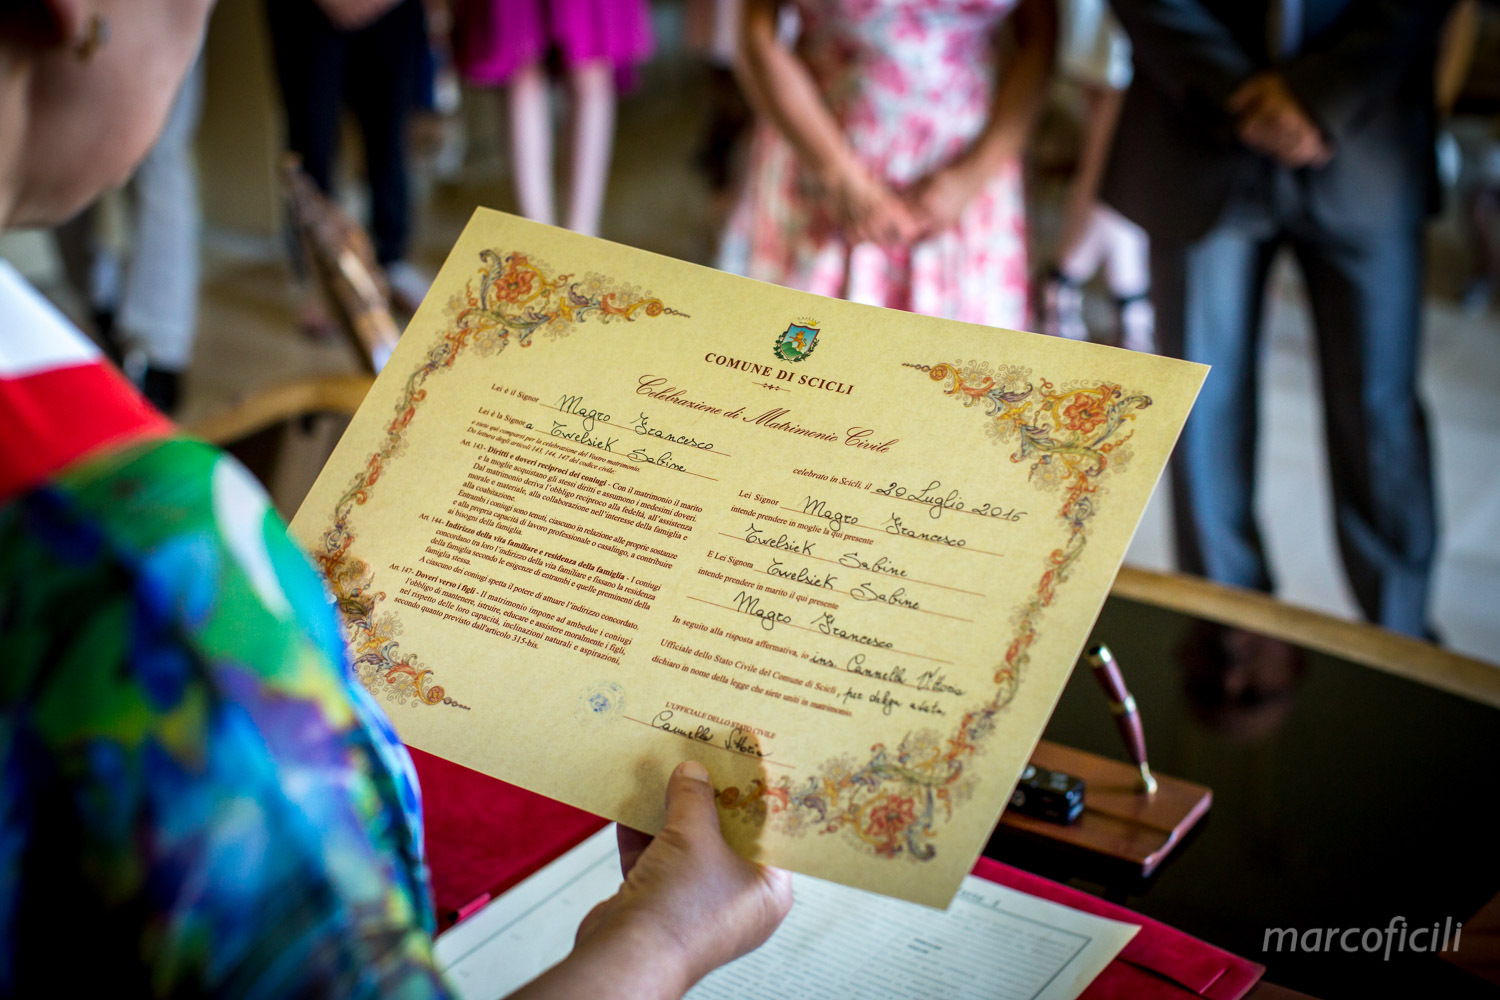 COMUNE DI SCICLI
Celebrazione di Matrimonio Civile
Lei è il Signor Magro Francesco
Lei è la Signora Twelsiek Sabine
e siete qui comparsi per la celebrazione del Vostro matrimonio.
Do lettura degli articoli 143, 144, 147 del codice civile.
Art. 143- Diritti e doveri reciproci dei coniugi - Con il matrimonio il marito
e la moglie acquistano gli stessi diritti e assumono i medesimi doveri.
Dal matrimonio deriva l'obbligo reciproco alla fedeltà, all'assistenza
morale e materiale, alla collaborazione nell'interesse della famiglia e
alla coabitazione.
Entrambi i coniugi sono tenuti, ciascuno in relazione alle proprie sostanze
e alla propria capacità di lavoro professionale o casalingo, a contribuire
ai bisogni della famiglia.
Art. 144- Indirizzo della vita familiare e residenza della famiglia - I coniugi
concordano tra loro l'indirizzo della vita familiare e fissano la residenza
della famiglia secondo le esigenze di entrambi e quelle preminenti della
famiglia stessa.
A ciascuno dei coniugi spetta il potere di attuare l'indirizzo concordato.
Art. 147- Doveri verso i figli - Il matrimonio impone ad ambedue i coniugi
l'obbligo di mantenere, istruire, educare e assistere moralmente i figli,
nel rispetto delle loro capacità, inclinazioni naturali e aspirazioni,
secondo quanto previsto dall'articolo 315-bis.
celebrato in Scicli, il 20 Luglio 2016
Lei Signor Magro Francesco
intende prendere in moglie la qui presente
Twelsiek Sabine
E Lei Signora Twelsiek Sabine
intende prendere in marito il qui presente
Magro Francesco
In seguito alla risposta affermativa, io ins. Cannella Vittoria
Ufficiale dello Stato Civile del Comune di Scicli, per delega
dichiaro in nome della legge che siete uniti in matrimonio.
L'UFFICIALE DELLO STATO CIVILE
Cannella
marcoficili